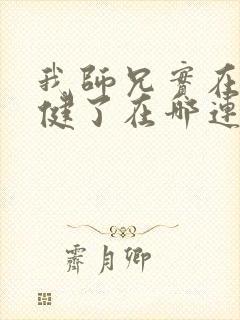 我師兄實在
健了在哪連
霽月卿